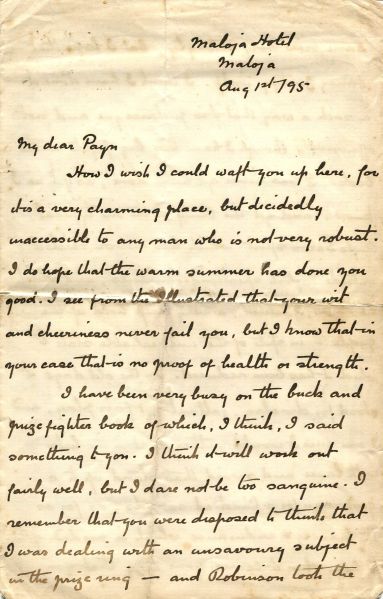 Maloja Hotel
Maloja
Aug 1st/95
My dear Payn
How I wish I could waft you up here, for
it is a very charming place, but decidedly
inaccessible to any man who is not very robust.
I do hope that the warm summer has done you
good. I see from the Illustrated that your wit
and cheeriness never fail you, but I know that in
your case that is no proof of health or strength.
I have been very busy on the buck and
prizefighter book of which, I think, I said
something to you. I think it will work out
fairly well, but I dare not be too sanguine. I
remember that you were disposed to think that
I was dealing with an unsavoury subject
in the prize ring — and Robinson took the